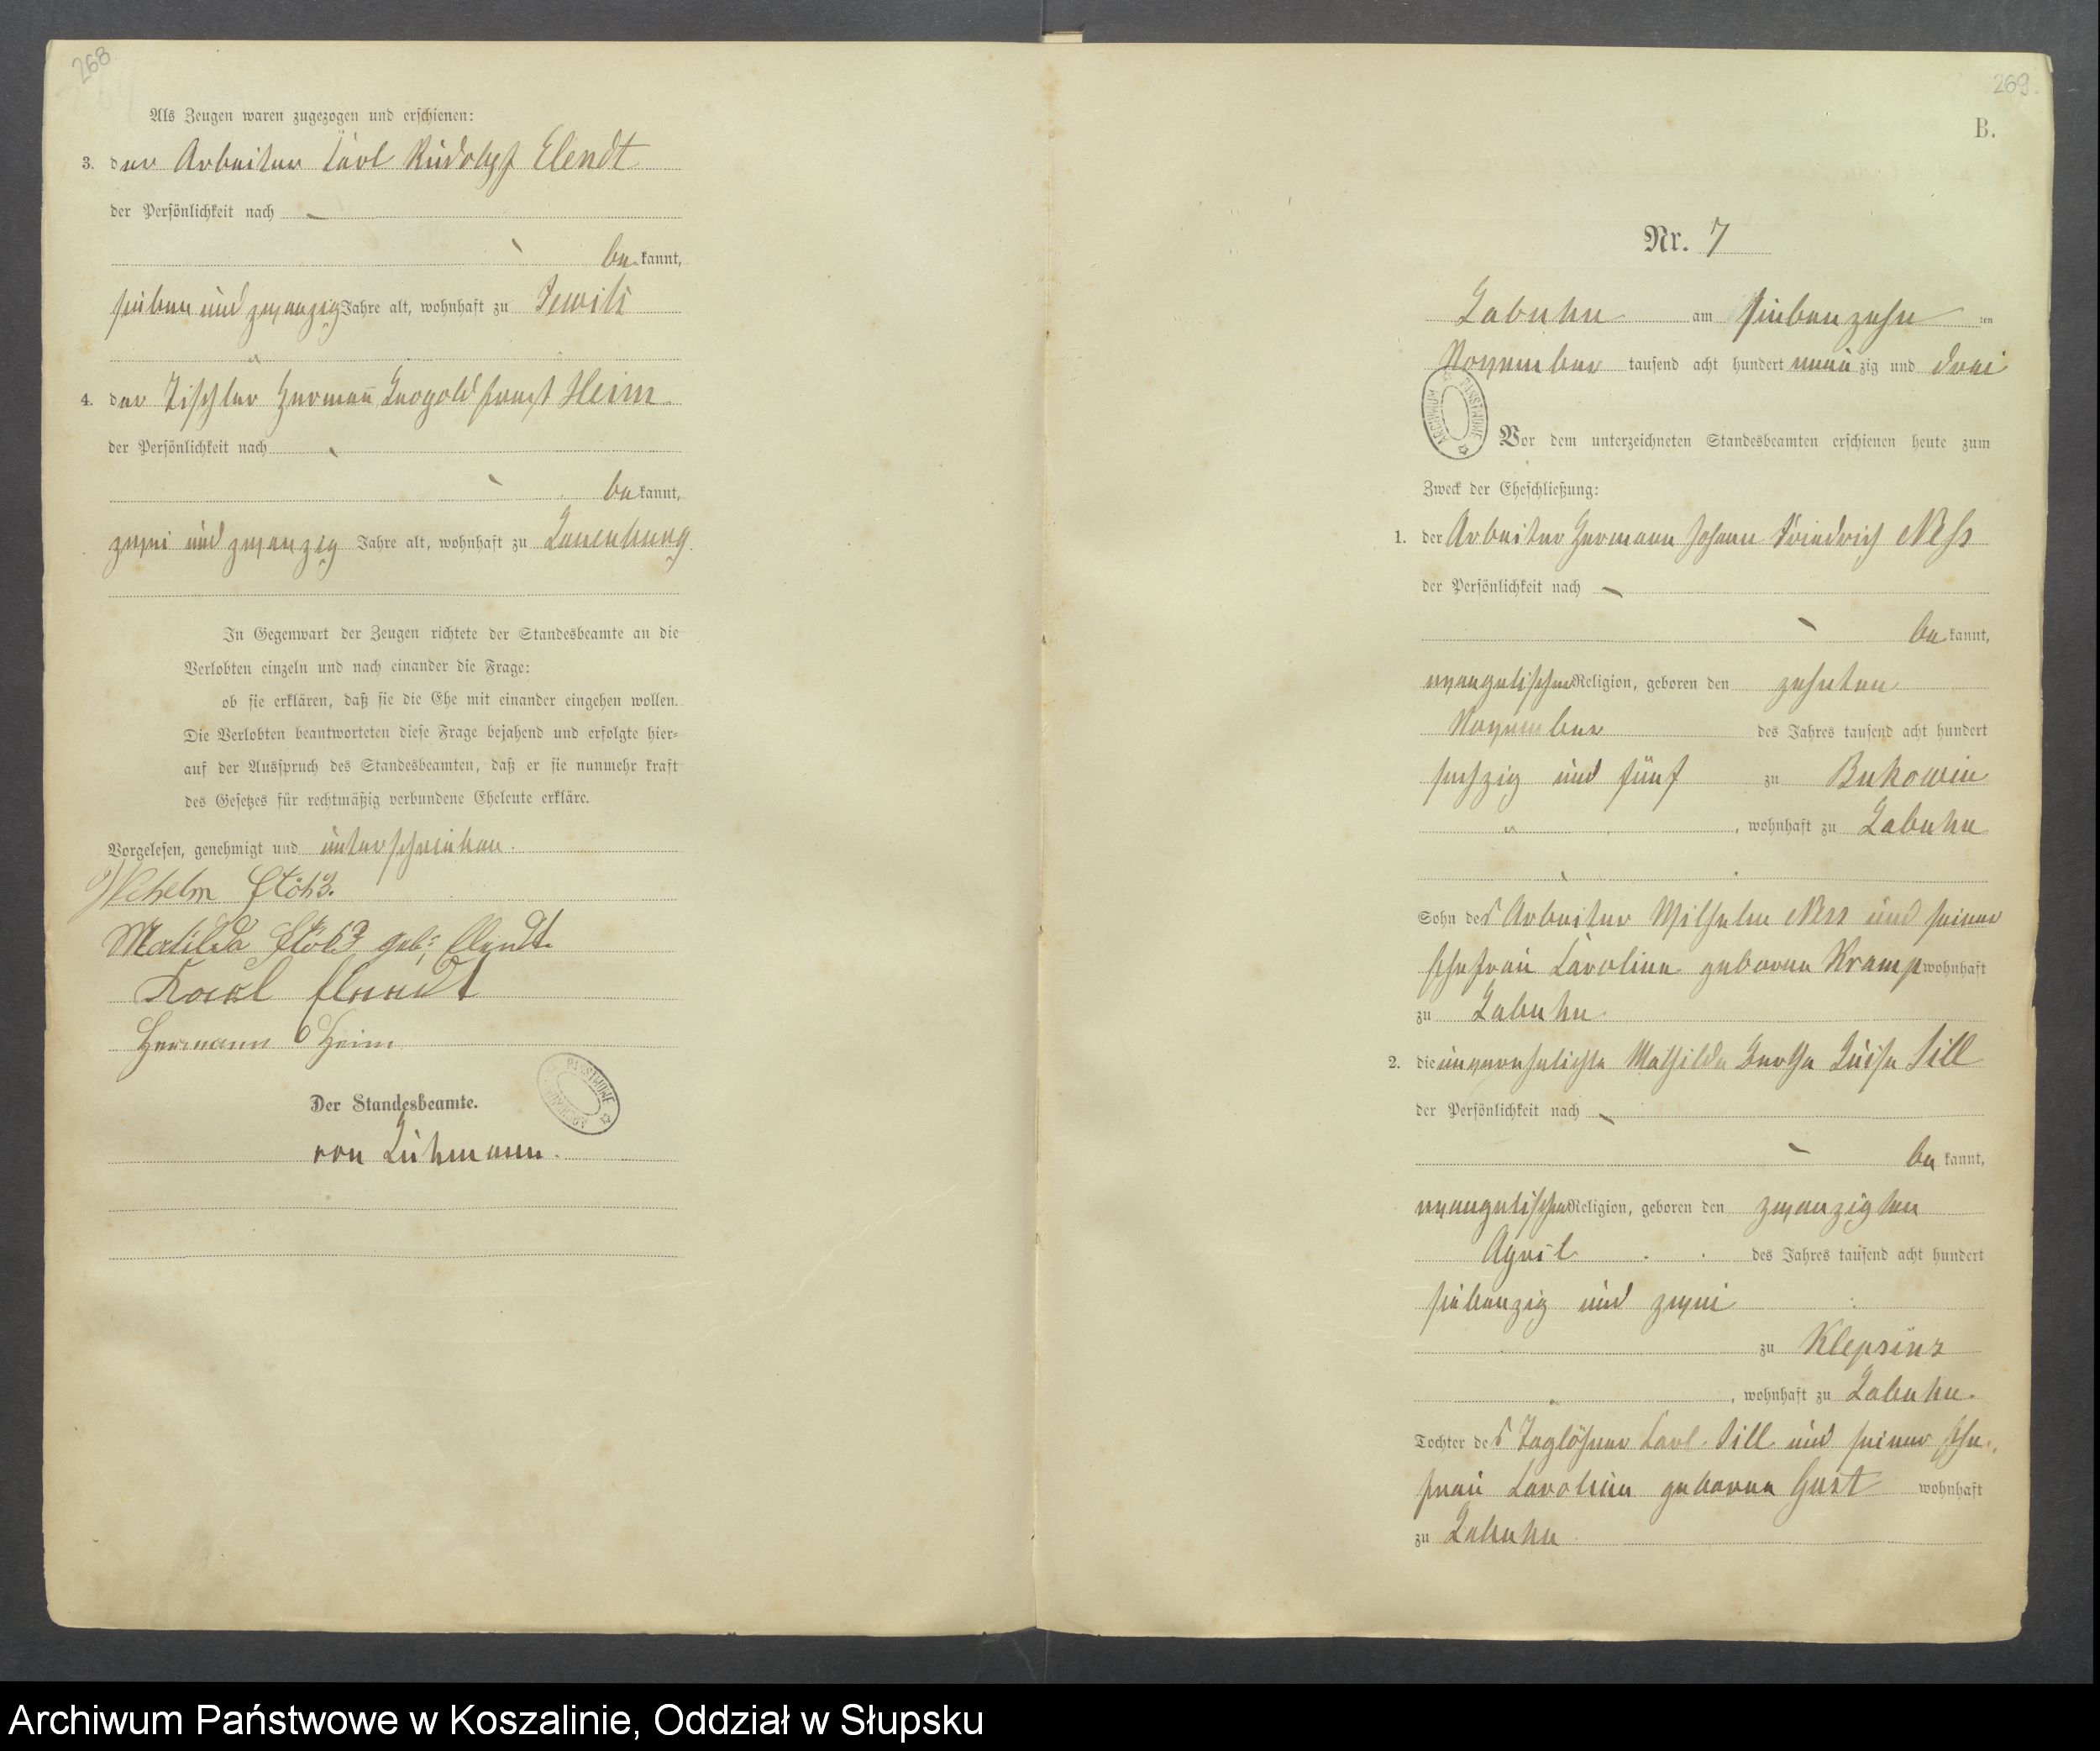 268
Als Zeugen waren zugezogen und erschienen:
3. der Arbeiter Carl Rudolpf Elendt
der Persönlichkeit nach
bekannt,
sieben und zwanzig Jahre alt, wohnhaft zu
4. der Tischler Hermann Leopold Ernst Heim
der Persönlichkeit nach
bekannt,
zwei und zwanzig Jahre alt, wohnhaft zu Lauenburg
In Gegenwart der Zeugen richtete der Standesbeamte an die
Verlobten einzeln und nach einander die Frage:
ob sie erklären, daß sie die Ehe mit einander eingehen wollen.
Die Verlobten beantworteten diese Frage bejahend und erfolgte hier=
auf der Ausspruch des Standesbeamten, daß er sie nunmehr kraft
des Gesetzes für rechtmäßig verbundene Eheleute erkläre.
Vorgelesen, genehmigt und unterschrieben.
Wilhelm
Matilda geb: Elendt.
Elendt
Hermann Heim
ARCHIWUM PAŃSTWOWE
Der Standesbeamte.
von Lühmann.
269.
B.
Nr. 7
Labuhn am siebenzehnten
November tausend acht hundert neunzig und drei
ARCHIWUM PAŃSTWOWE
Vor dem unterzeichneten Standesbeamten erschienen heute zum
Zweck der Eheschließung:
1. der Arbeiter Hermann Johann Friedrich Neß
der Persönlichkeit nach
bekannt,
evangelischer Religion, geboren den zehnten
November des Jahres tausend acht hundert
sechzig und fünf zu Bukowin
, wohnhaft zu Labuhn
Sohn des Arbeiter Wilhelm Ness und seiner
Ehefrau Caroline geborene Kramp wohnhaft
zu Labuhn.
2. die unverehelichte Mathilde Bertha Luise Sill
der Persönlichkeit nach
bekannt,
evangelischer Religion, geboren den zwanzigten
April des Jahres tausend acht hundert
siebenzig und zwei
zu Klepsinz
, wohnhaft zu Labuhn.
Tochter des Taglöhner Carl Sill und seiner Ehe-
frau Caroline geborene Gust wohnhaft
zu Labuhn
Archiwum Państwowe w Koszalinie, Oddział w Słupsku